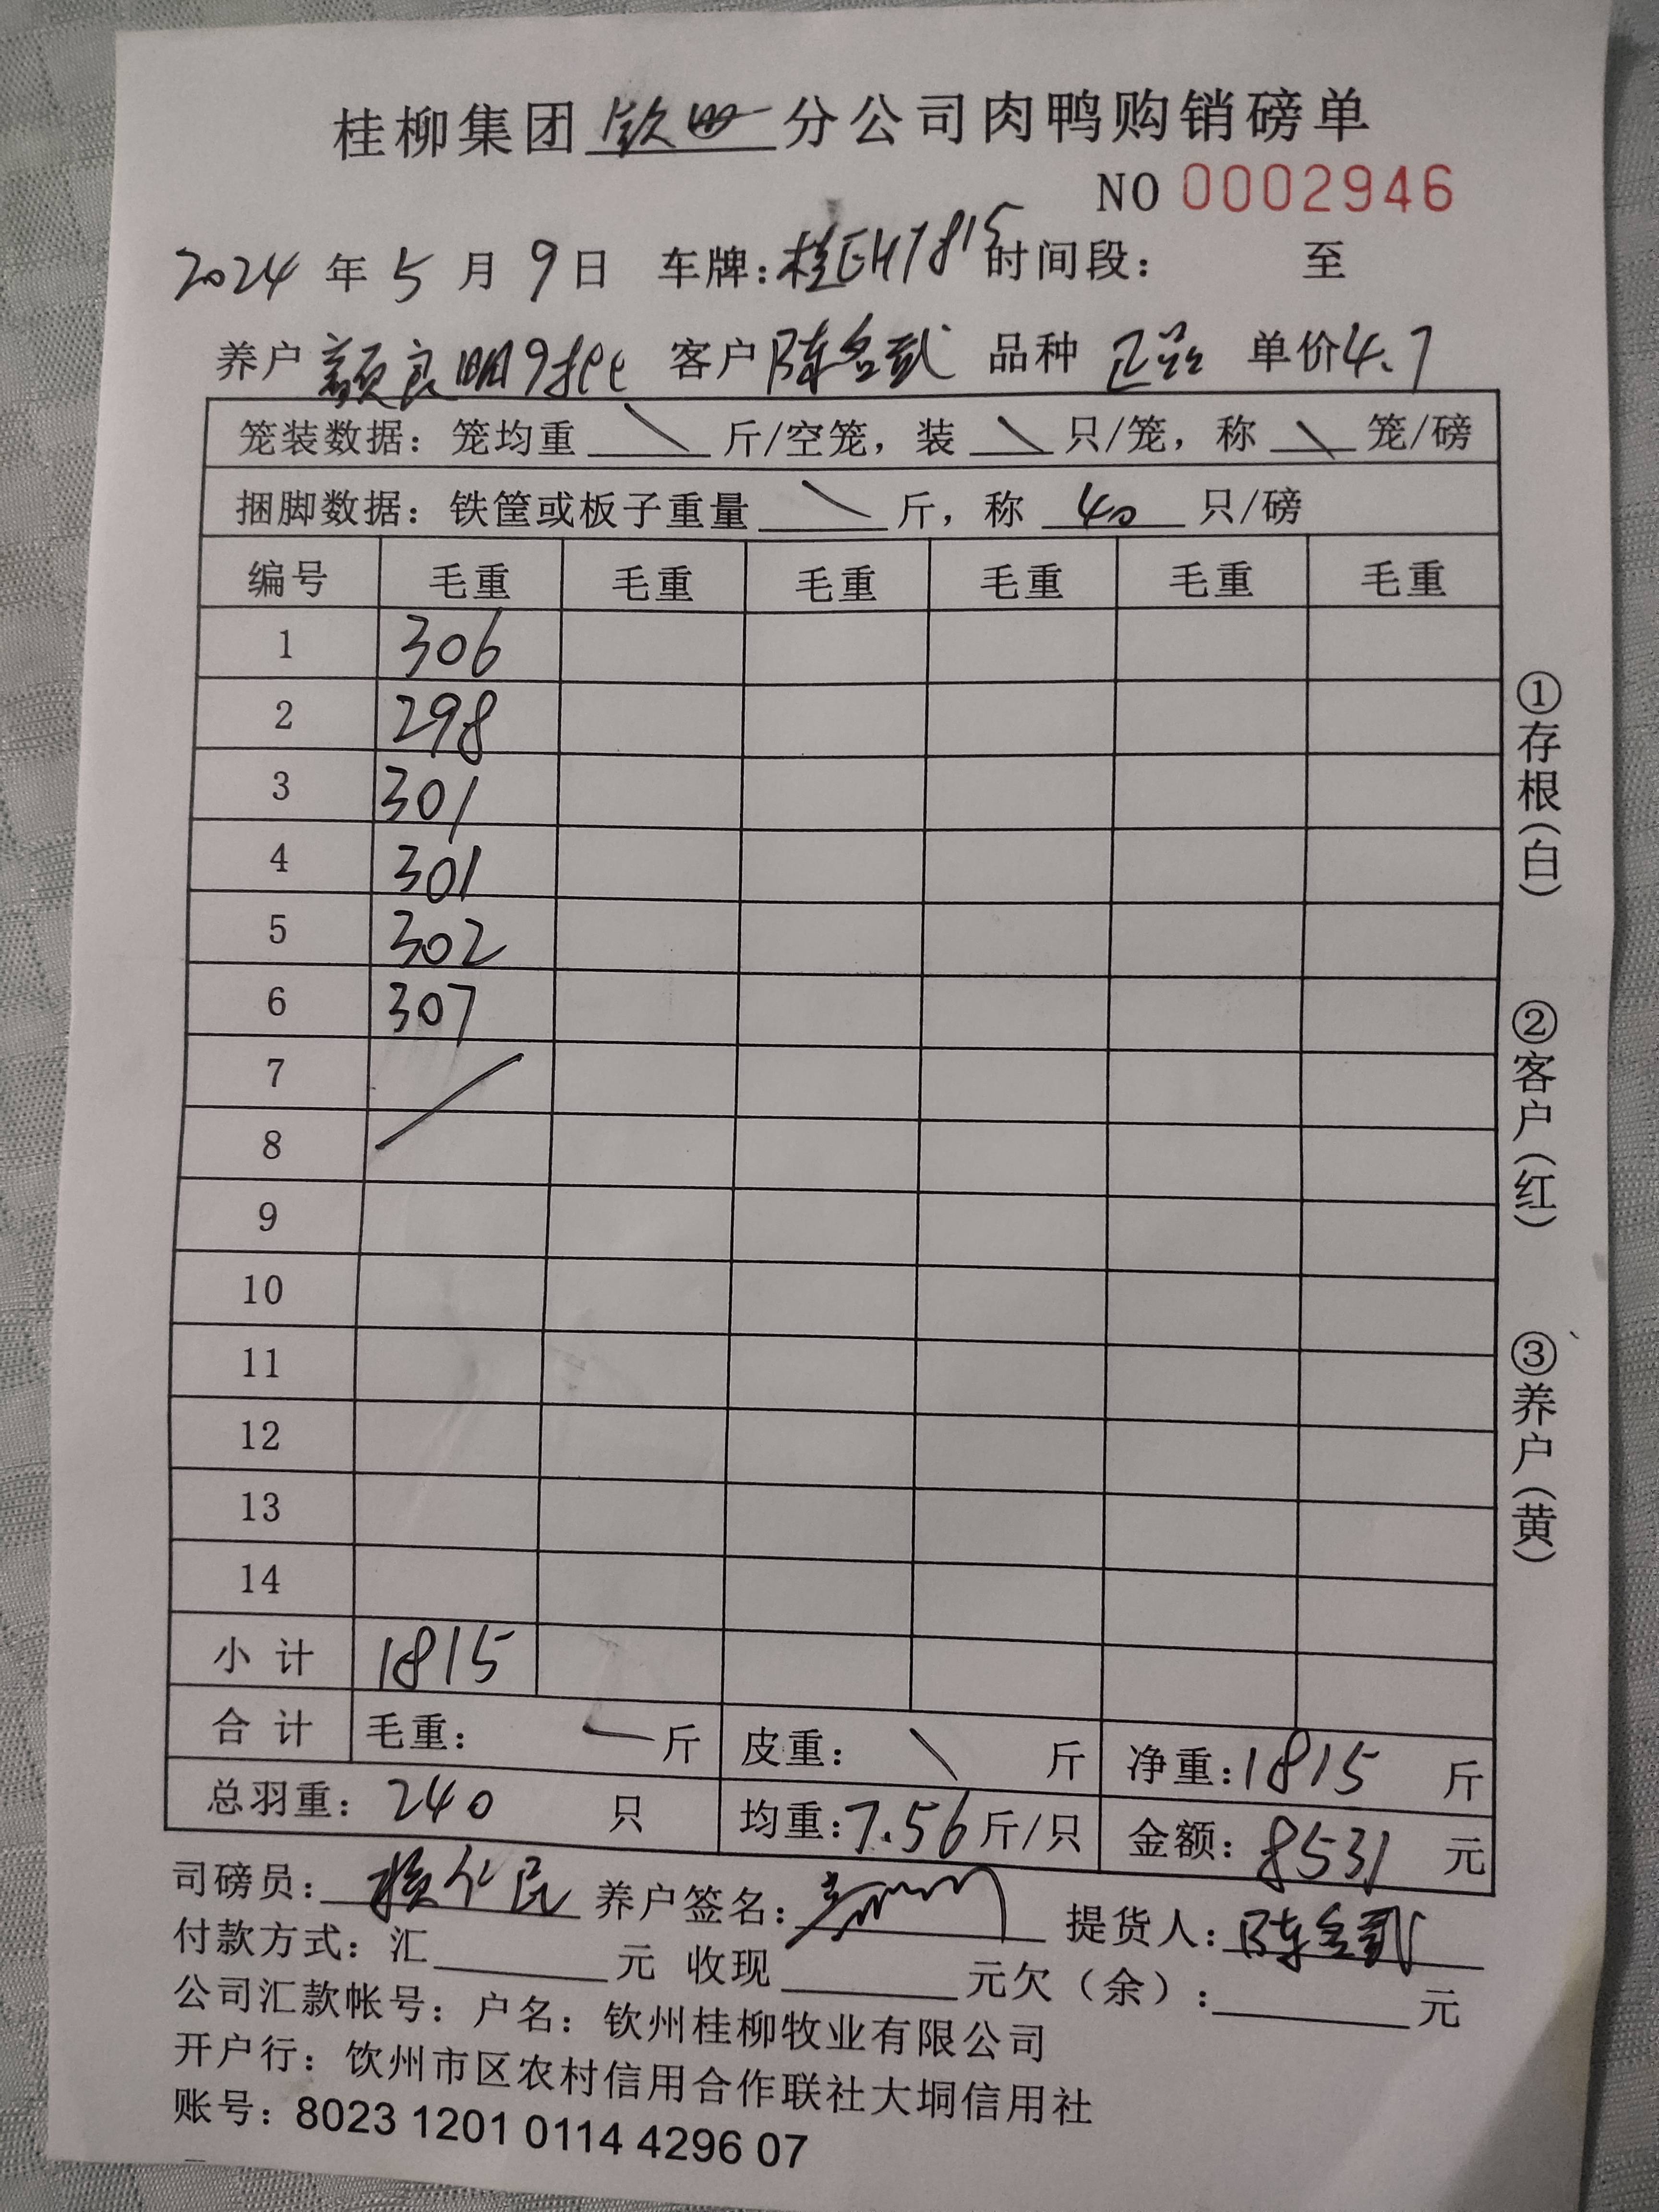 桂柳集团钦州分公司肉鸭购销磅单
NO 0002946
2024年5月9日 车牌:桂EH7815 时间段: 至
养户 颜良明9批 客户 陈名贰 品种 单价4.7
笼装数据: 笼均重 \ 斤/空笼, 装 \ 只/笼, 称 \ 笼/磅
捆脚数据: 铁筐或板子重量 \ 斤, 称 40 只/磅
编号 毛重 毛重 毛重 毛重 毛重 毛重
1 306
2 298
3 301
4 301
5 302
6 307
7
8
9
10
11
12
13
14
小计 1815
合计 毛重: 斤 皮重: \ 斤 净重:1815 斤
总羽重: 240 只 均重:7.56斤/只 金额: 8531 元
司磅员: 养户签名: 提货人:
付款方式: 汇 元 收现 元欠(余): 元
公司汇款帐号: 户名: 钦州桂柳牧业有限公司
开户行: 钦州市区农村信用合作联社大垌信用社
账号: 8023 1201 0114 4296 07
①存根(白)
②客户(红)
③养户(黄)